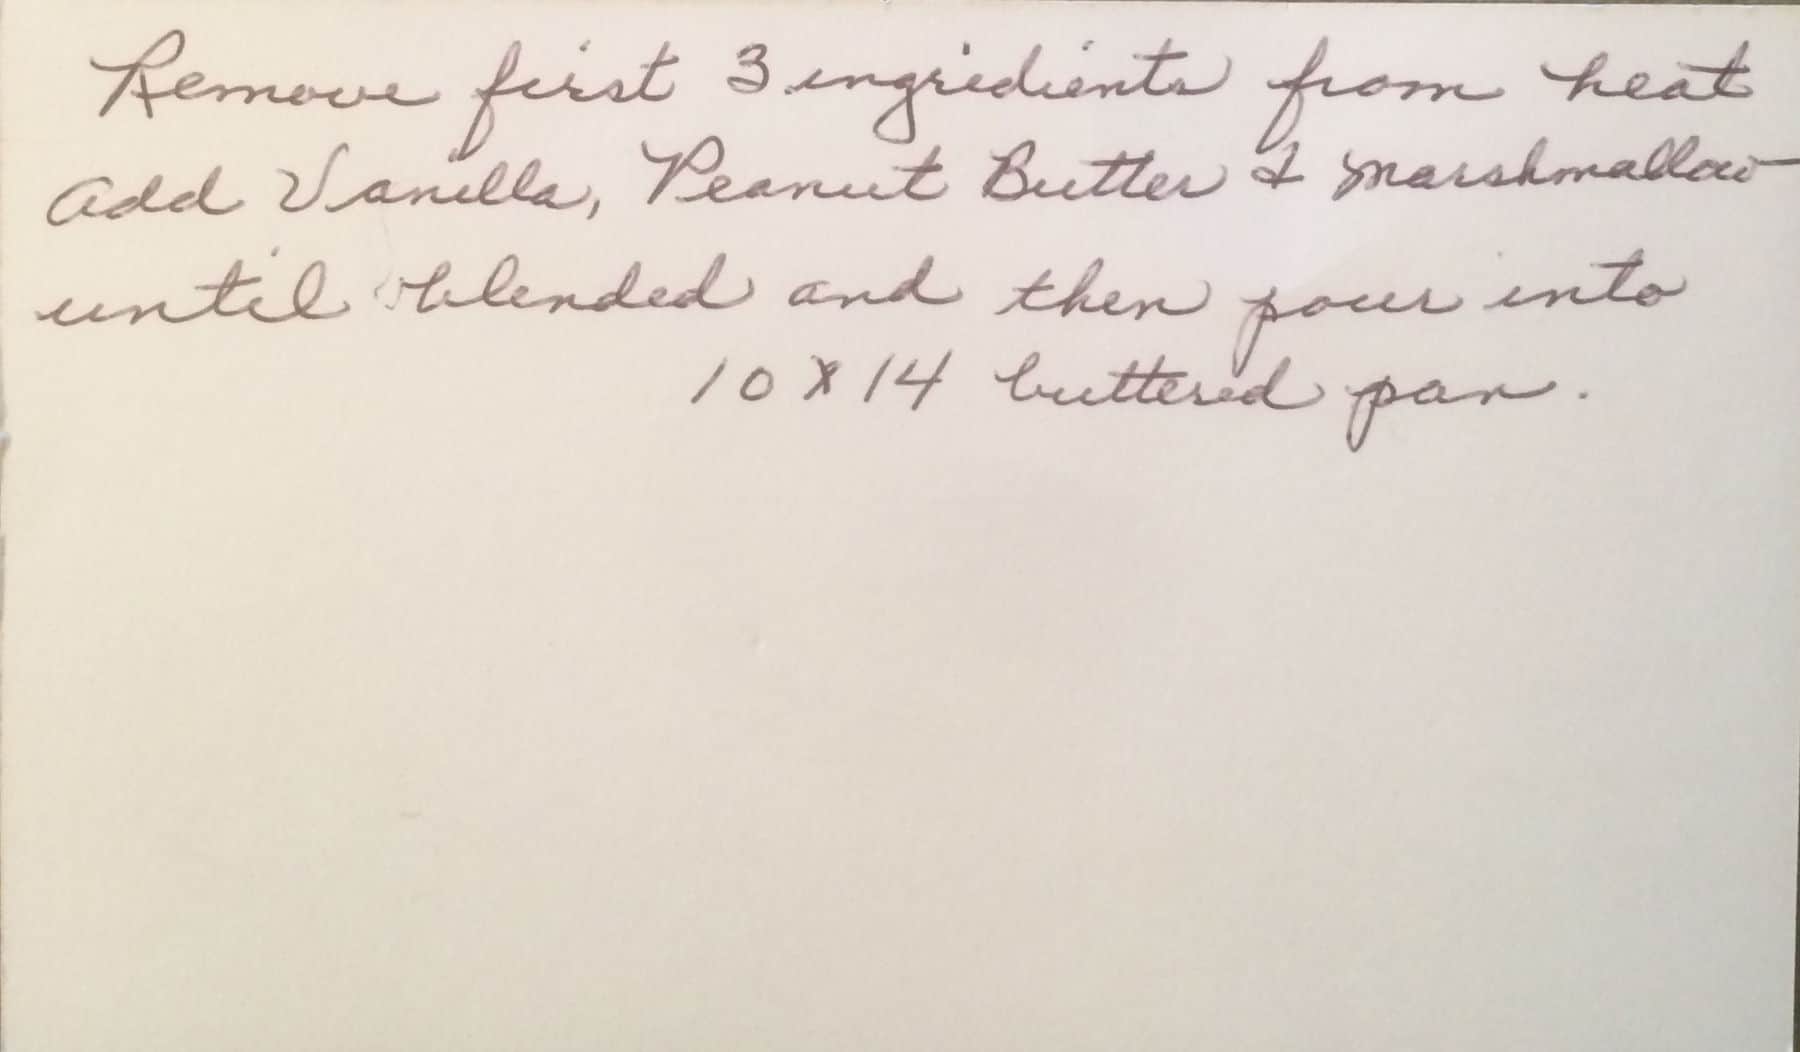 Remove first 3 ingredients from heat
add Vanilla, Peanut Butter & Marshmallow
until blended and then pour into
10 x 14 buttered pan.